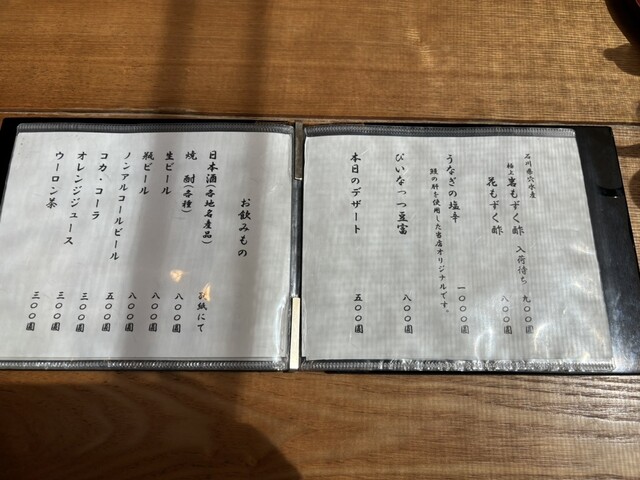 石川県穴水産
極上 岩もずく酢 入荷待ち 九〇〇圓
花もずく酢 八〇〇圓
うなぎの塩辛 一〇〇〇圓
鰻の肝を使用した当店オリジナルです。
ぴいなっつ豆富 八〇〇圓
本日のデザート 五〇〇圓
お飲みもの
日本酒(各地名産品) 別紙にて
焼酎(各種) 八〇〇圓
生ビール 八〇〇圓
瓶ビール 八〇〇圓
ノンアルコールビール 五〇〇圓
コカ・コーラ 三〇〇圓
オレンジジュース 三〇〇圓
ウーロン茶 三〇〇圓